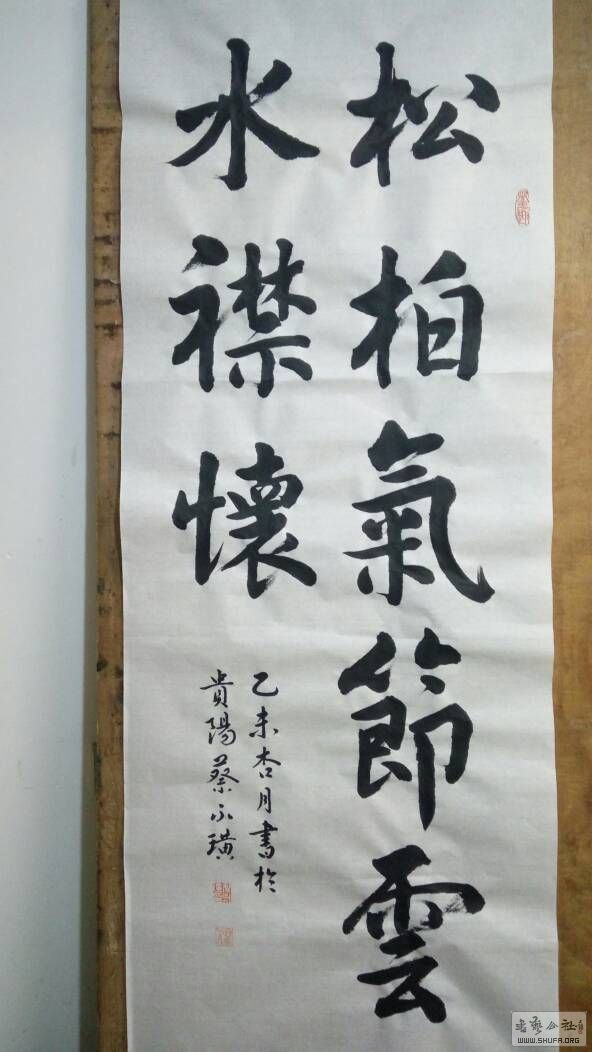 松柏氣節雲
水襟懷
乙未杏月書於
貴陽蔡永璜
WWW.SHUFA.ORG